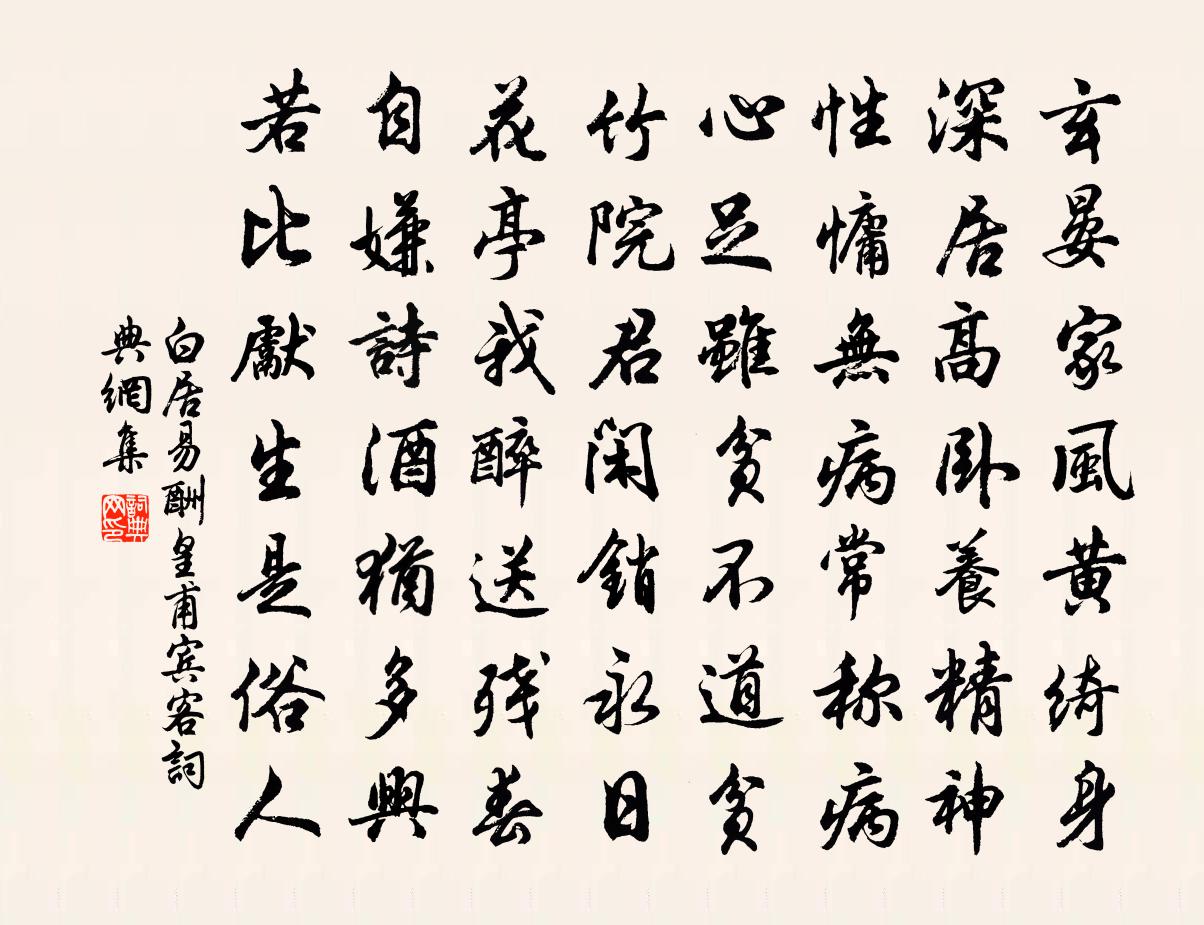 玄晏家風黃綺身
深居高臥養精神
性慵無病常称病
心足雖貧不道貧
竹院君閑銷永日
花亭我醉送残春
自嫌詩酒猶多興
若比獻生是俗人
白居易酬皇甫賓客詞
典網集
詞典網印